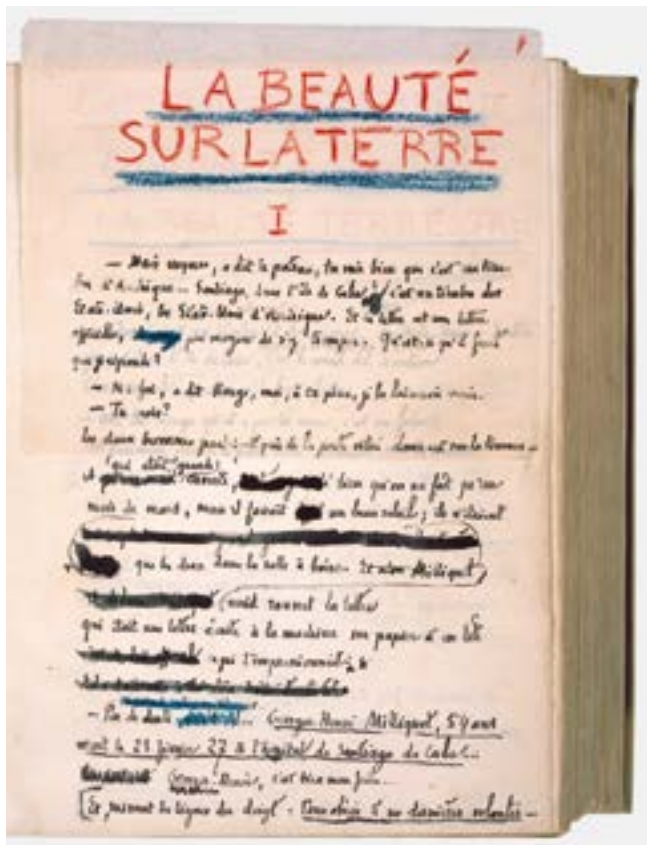 LA BEAUTÉ
SUR LA TERRE
I
— Mais voyons, a dit le patron, tu vois bien que c'est un
d'Amérique — Santiago, dans l'île de Cuba, c'est un
États-Unis, les États-Unis d'Amérique. Et la lettre est une lettre
officielle, pas moyen de s'y tromper. Qu'est-ce qu'il faut
que je réponde?
— Ma foi, a dit Rouge, moi, à ta place, je la laisserais venir.
— Tu crois?
Les deux hommes
qui était grande
bien qu'on ne fût qu'au
mois de mars, mais il faisait un beau soleil; ils n'étaient
que les deux dans la salle à boire. Et alors Milliquet
avait ramené la lettre
qui était une lettre écrite à la machine sur papier à en-tête
qui l'impressionnait
— Pas de doute ... Georges-Henri Milliquet, 54 ans
mort le 23 février 27 à l'hôpital de Santiago de Cuba...
Georges-Henri, c'est bien mon frère...
Et, suivant les lignes du doigt — Pour obéir à ses dernières volontés —